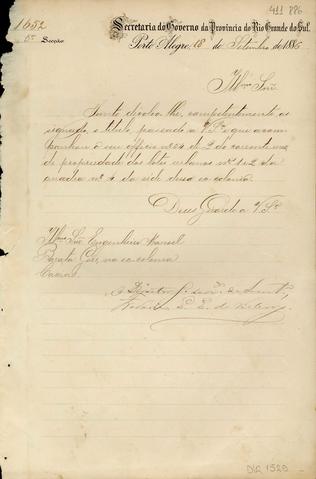 411 886
1652
5ª Secção
Secretaria do Governo da Provincia do Rio Grande do Sul.
Porto Alegre, 18 de Setembro de 1886
Illmo Snr
Junto devolvo-lhe, competentemente as
signado, o titulo passado a V.Sª e que acom
panhou o seu officio nº 24 de 2 do corrente
de propriedade dos lotes urbanos nos 1 e 2 da
quadra nº 4 da séde dessa ex colonia.
Deus Guarde a V.Sª
Illmo Snr Engenheiro Manoel
Barata Góes, na ex colonia
Caxias
O Director